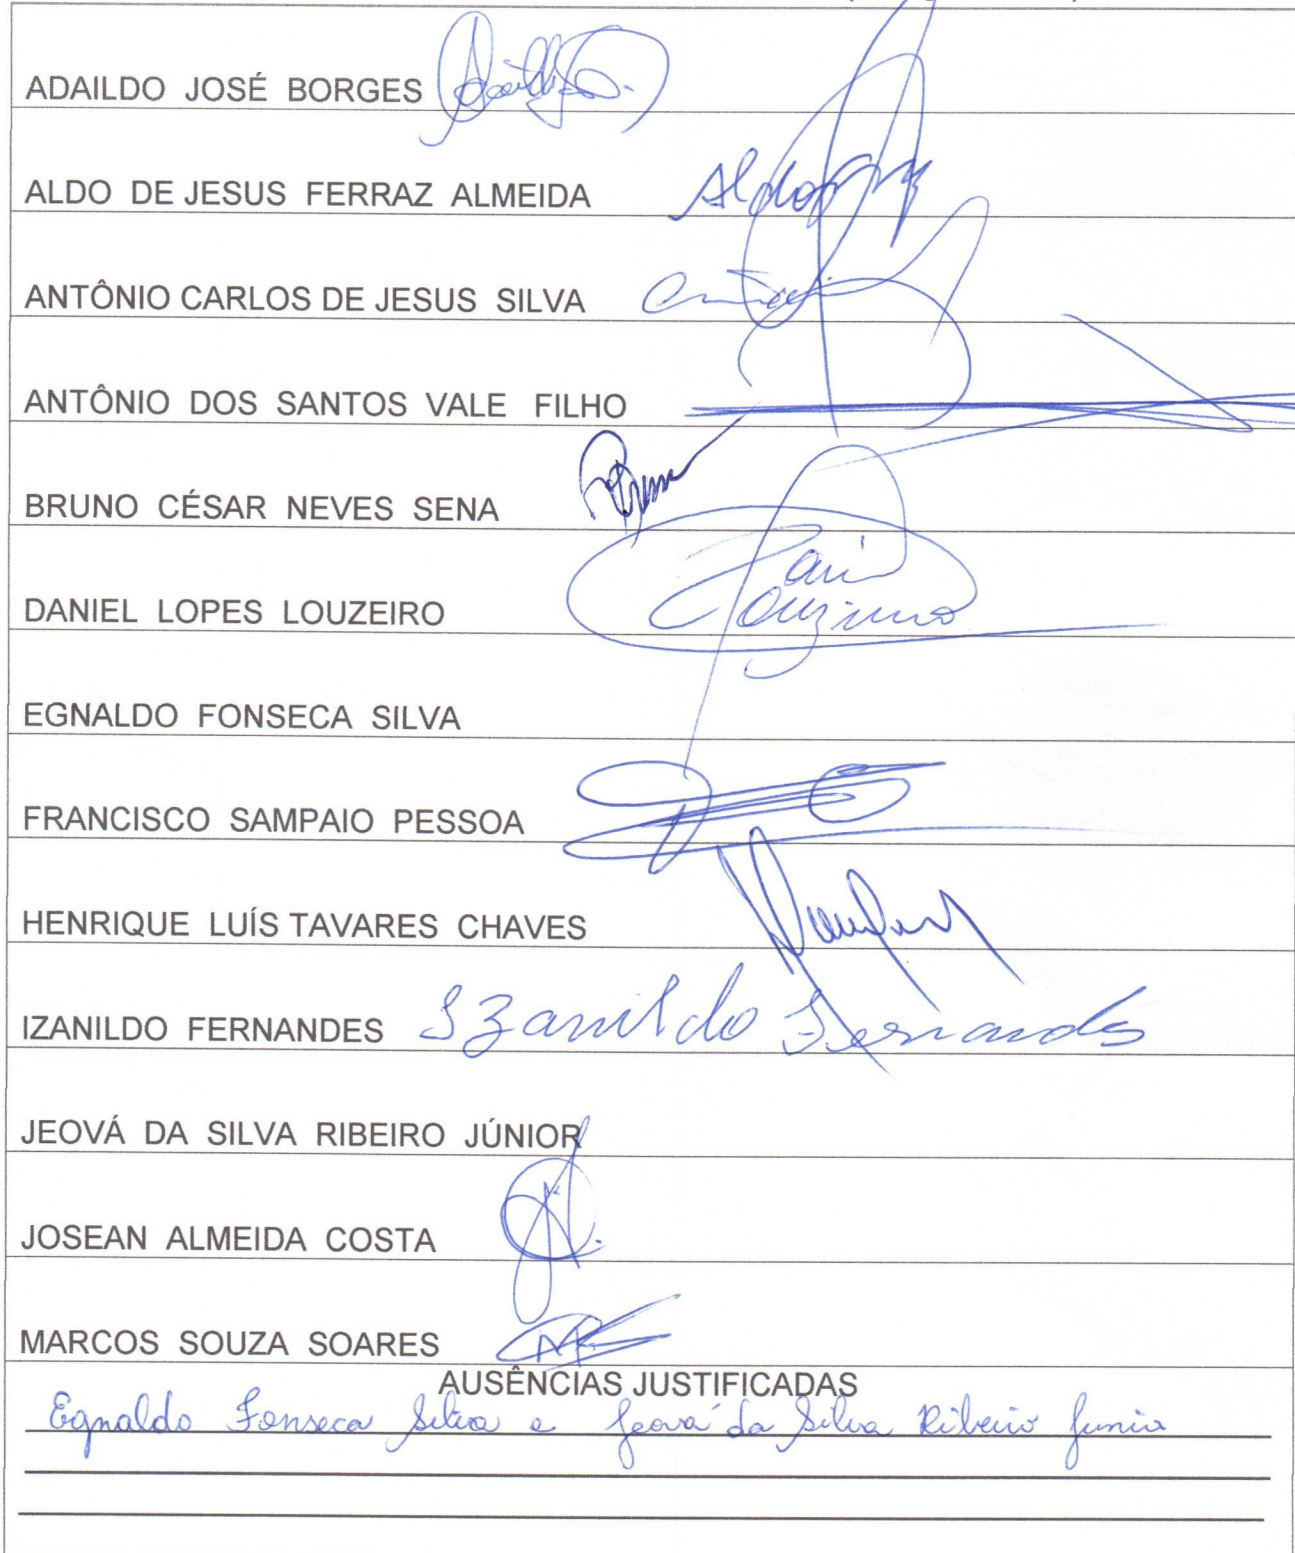 ADAILDO JOSÉ BORGES
ALDO DE JESUS FERRAZ ALMEIDA
ANTÔNIO CARLOS DE JESUS SILVA
ANTÔNIO DOS SANTOS VALE FILHO
BRUNO CÉSAR NEVES SENA
DANIEL LOPES LOUZEIRO
EGNALDO FONSECA SILVA
FRANCISCO SAMPAIO PESSOA
HENRIQUE LUÍS TAVARES CHAVES
IZANILDO FERNANDES Izanildo Fernandes
JEOVÁ DA SILVA RIBEIRO JÚNIOR
JOSEAN ALMEIDA COSTA
MARCOS SOUZA SOARES
AUSÊNCIAS JUSTIFICADAS
Egnaldo Fonseca Silva e Jeová da Silva Ribeiro Junior